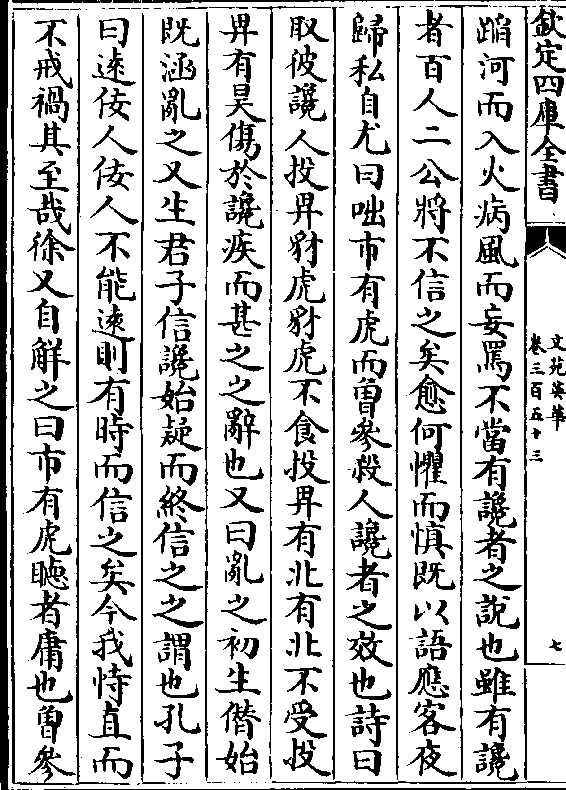 欽定四庫全書
文苑英華
卷三百五十三
七
蹈河而入火病風而妄罵不當有讒者之說也雖有讒
者百人二公將不信之矣愈何懼而慎既以語應客夜
歸私自尤曰咄市有虎而曾參殺人讒者之效也詩曰
取彼讒人投畀豺虎豺虎不食投畀有北有北不受投
畀有昊傷於讒疾而甚之之辭也又曰亂之初生僭始
既涵亂之又生君子信讒始疑而終信之之謂也孔子
曰遠佞人佞人不能逺則有時而信之矣今我恃直而
不戒禍其至哉徐又自解之曰市有虎聴者庸也曾參